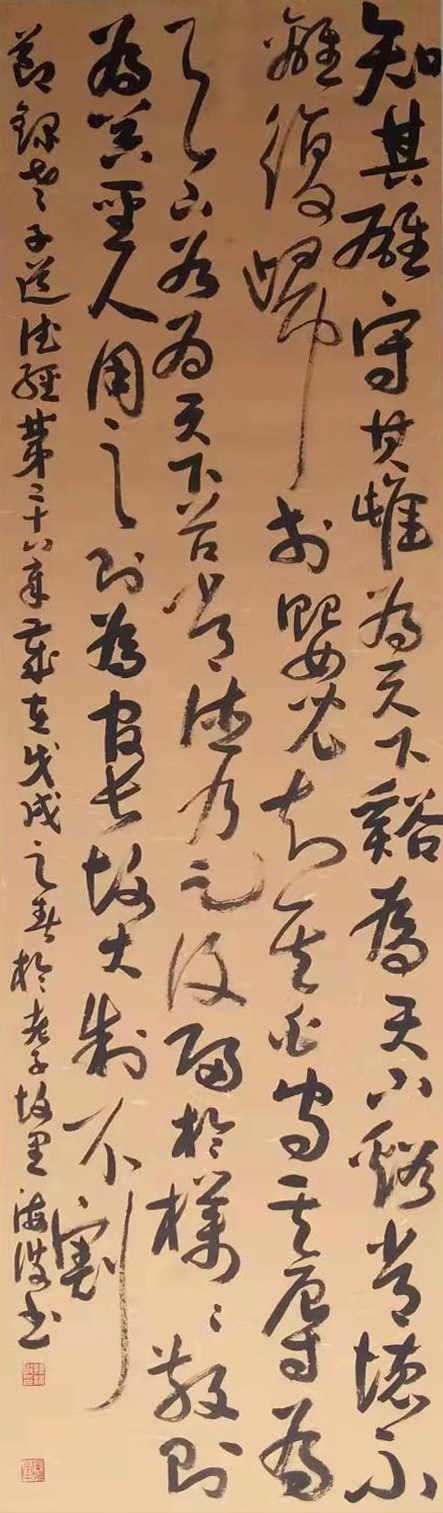 知其雄守其雌為天下谿為天下谿常德不
離復歸於嬰兒知其白守其辱為
天下谷為天下谷常德乃足復歸於樸〻散則
為器聖人用之則為官長故大制不割
節錄老子道德經第二十八章歲在戊戌之春於老子故里海書